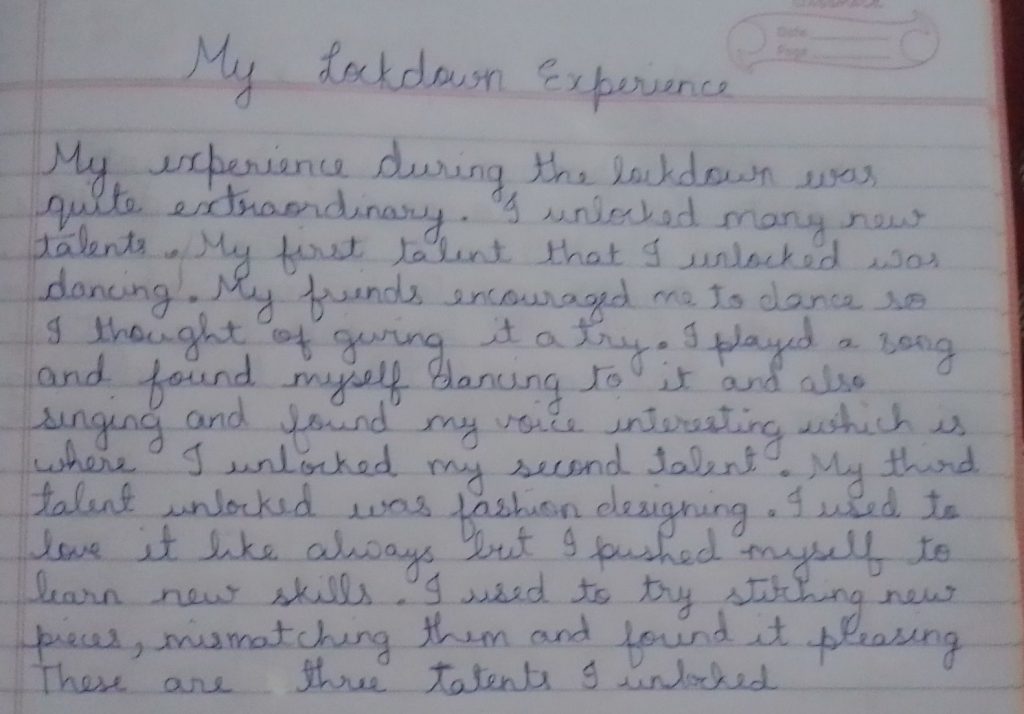 Date
Page
My Lockdown Experience
My experience during the lockdown was
quite extraordinary. I unlocked many new
talents. My first talent that I unlocked was
dancing. My friends encouraged me to dance so
I thought of giving it a try. I played a song
and found myself dancing to it and also
singing and found my voice interesting which is
where I unlocked my second talent. My third
talent unlocked was fashion designing. I used to
love it like always but I pushed myself to
learn new skills. I used to try stitching new
pieces, mismatching them and found it pleasing
These are three talents I unlocked